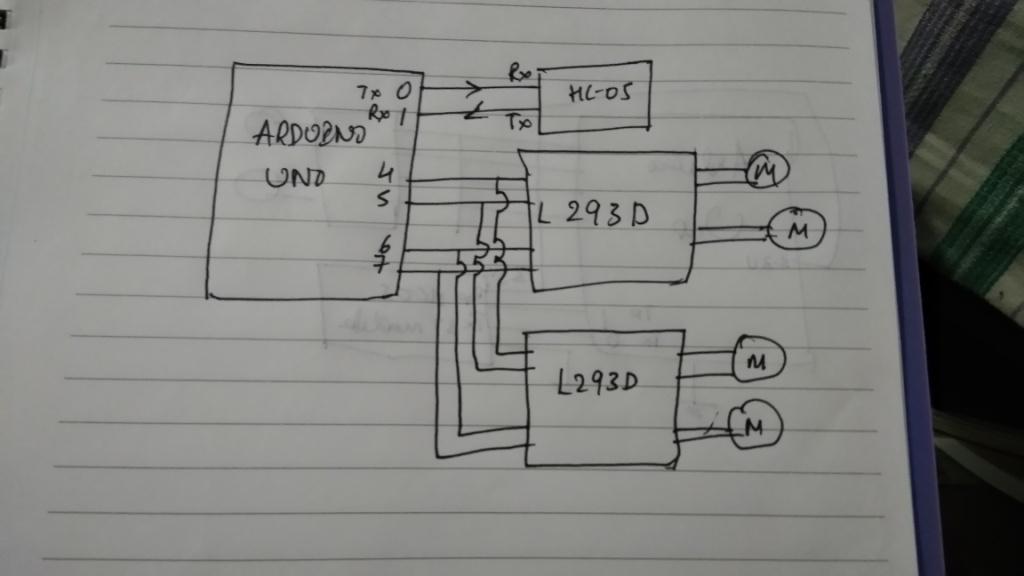 Tx 0 Rx HC-05
Rx 1 Tx
ARDUINO
UNO 4
5
L293D
6
7
M
M
L293D
M
M